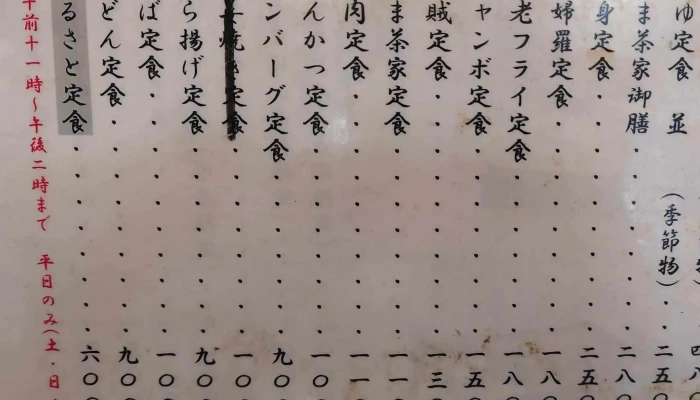 ゆ定食 並 (季節物)・・二五〇
ま茶家御膳・・・・・・・二八〇
身定食・・・・・・・・・二五〇
婦羅定食・・・・・・・・一八〇
老フライ定食・・・・・・一八〇
ャンボ定食・・・・・・・一五〇
賊定食・・・・・・・・・一三〇
ま茶家定食・・・・・・・一一〇
肉定食・・・・・・・・・一一〇
んかつ定食・・・・・・・一〇〇
ンバーグ定食・・・・・・九〇
焼き定食・・・・・・・一〇
ら揚げ定食・・・・・・・九〇
ば定食・・・・・・・・・一〇
どん定食・・・・・・・・九〇
るさと定食・・・・・・・六〇
午前十一時～午後二時まで 平日のみ(土・日